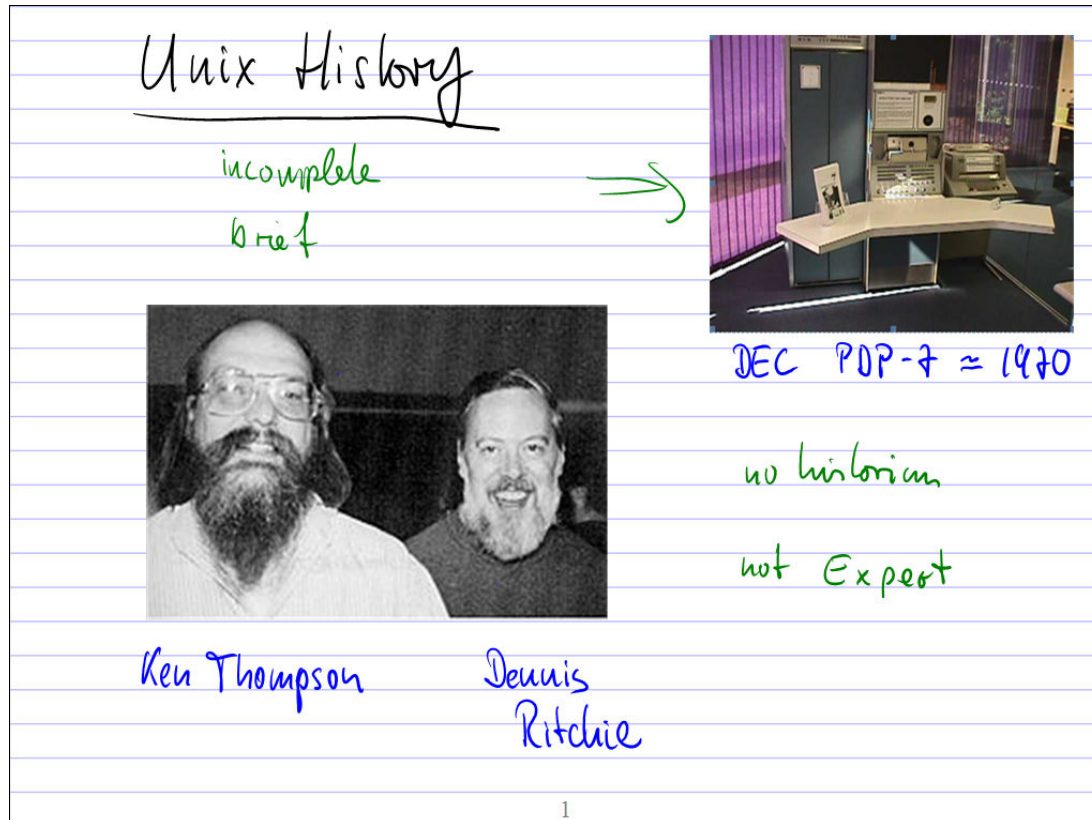 Unix History
incomplete
brief
DEC PDP-7 ≃ 1970
no historian
not Expert
Ken Thompson
Dennis
Ritchie
1